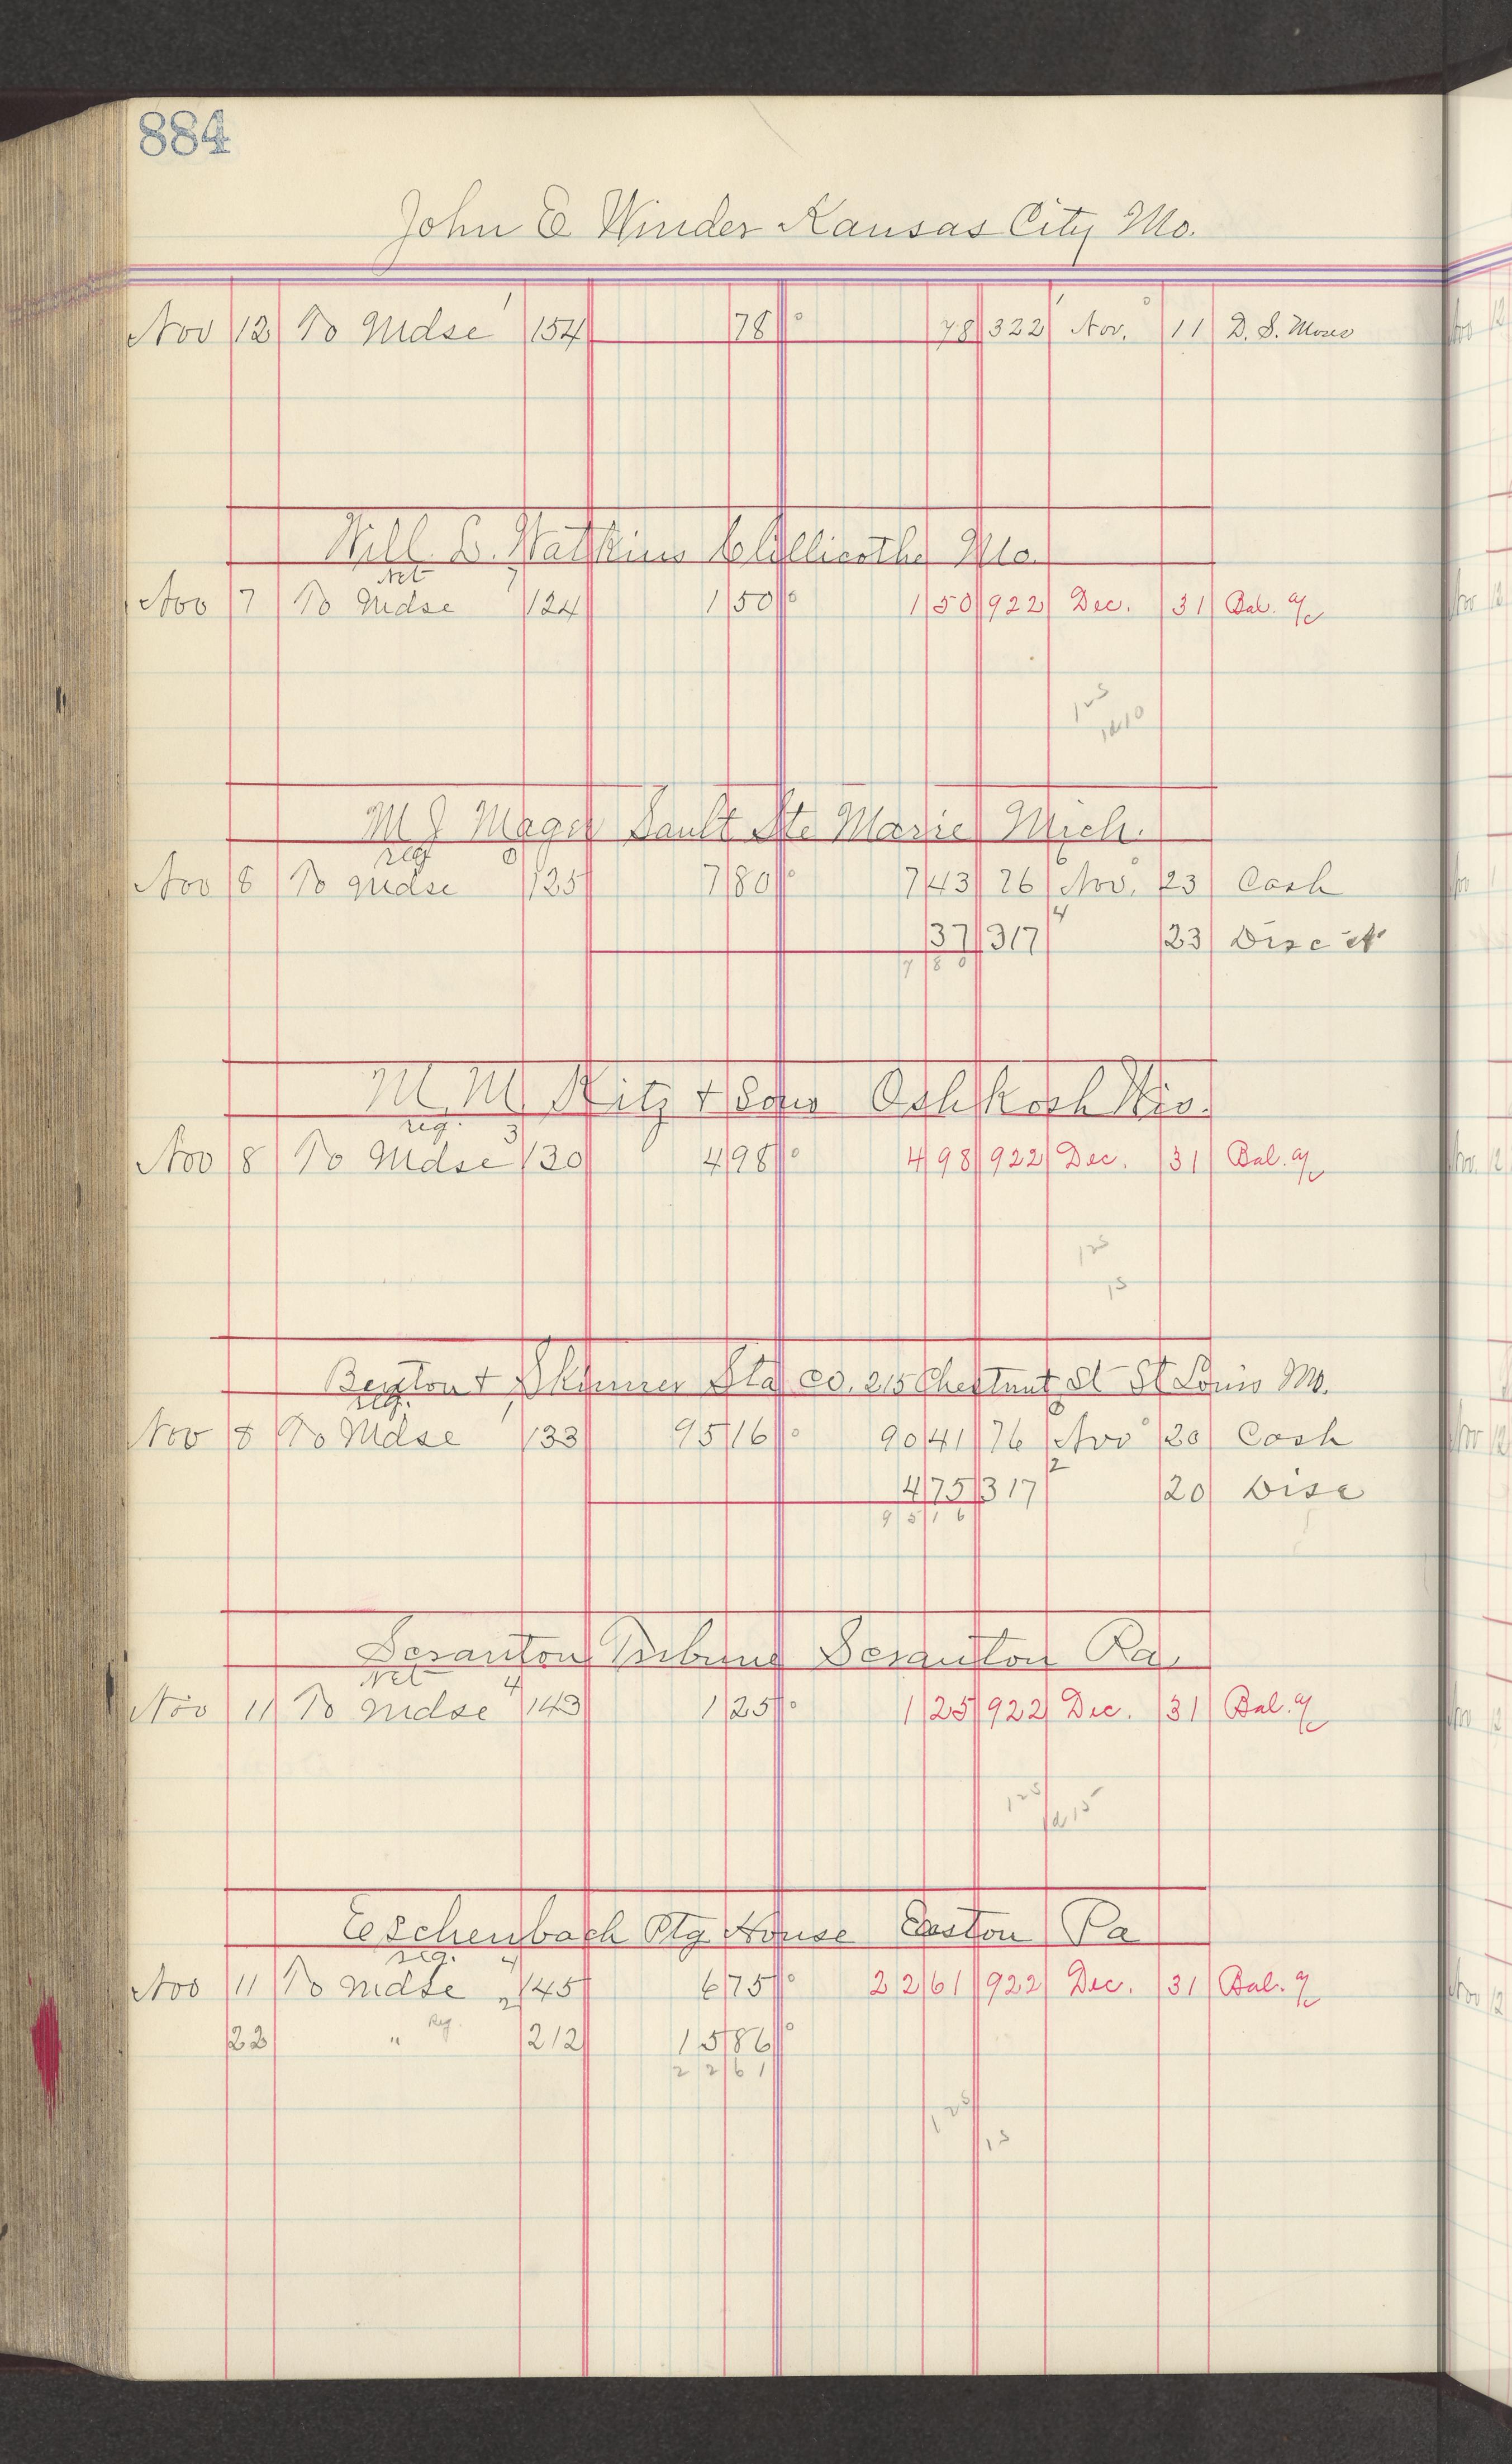 884
John E Winder Kansas City Mo.
Nov 12 To Mdse 1 154 78 ° 78 322 1 Nov. ° 11 D. S. Moses
Will. L. Watkins Chillicothe Mo.
Net 7
Nov 7 To Mdse 124 1 50 ° 1 50 922 Dec. 31 Bal. a/c
125
M J Mager Sault Ste Marie Mich.
reg 0 6
Nov 8 To Mdse 125 7 80 ° 7 43 76 Nov. ° 23 Cash
37 317 4 23 Disc't
7 8 0
M. M. Kitz & Sons Oshkosh Wis.
reg. 3
Nov 8 To Mdse 130 4 98 ° 4 98 922 Dec. 31 Bal. a/c
125
15
Buxton & Skinner Sta Co. 215 Chestnut St St Louis Mo.
reg. 1 8
Nov 8 To Mdse 133 95 16 ° 90 41 76 Nov ° 20 Cash
4 75 317 2 20 Disc
9 5 1 6
Scranton Tribune Scranton Pa.
Net 4
Nov 11 To Mdse 143 1 25 ° 1 25 922 Dec. 31 Bal. a/c
125
Eschenbach Ptg House Easton Pa
reg. 4
Nov 11 To Mdse 145 6 75 ° 22 61 922 Dec. 31 Bal. a/c
22 " Reg. 2 212 15 86 °
2 2 6 1
125
15